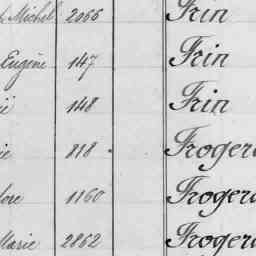 Michel 2066 Frin
Eugène 147 Frin
148 Frin
818 Froger
1160 Froger
Marie 2862 Froger